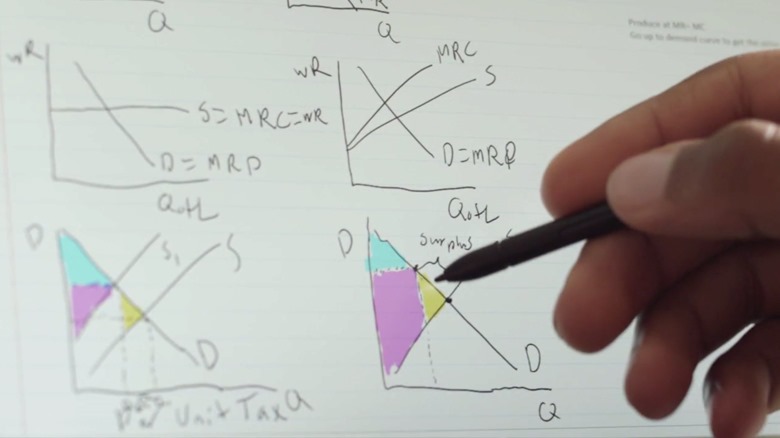 Q
Q
Produce at MR=MC
Go up to demand curve to get the
WR
S=MRC=WR
D=MRP
QofL
WR
MRC
S
D=MRP
QofL
D
S1
S
D
Unit Tax
Q
D
Surplus
D
Q